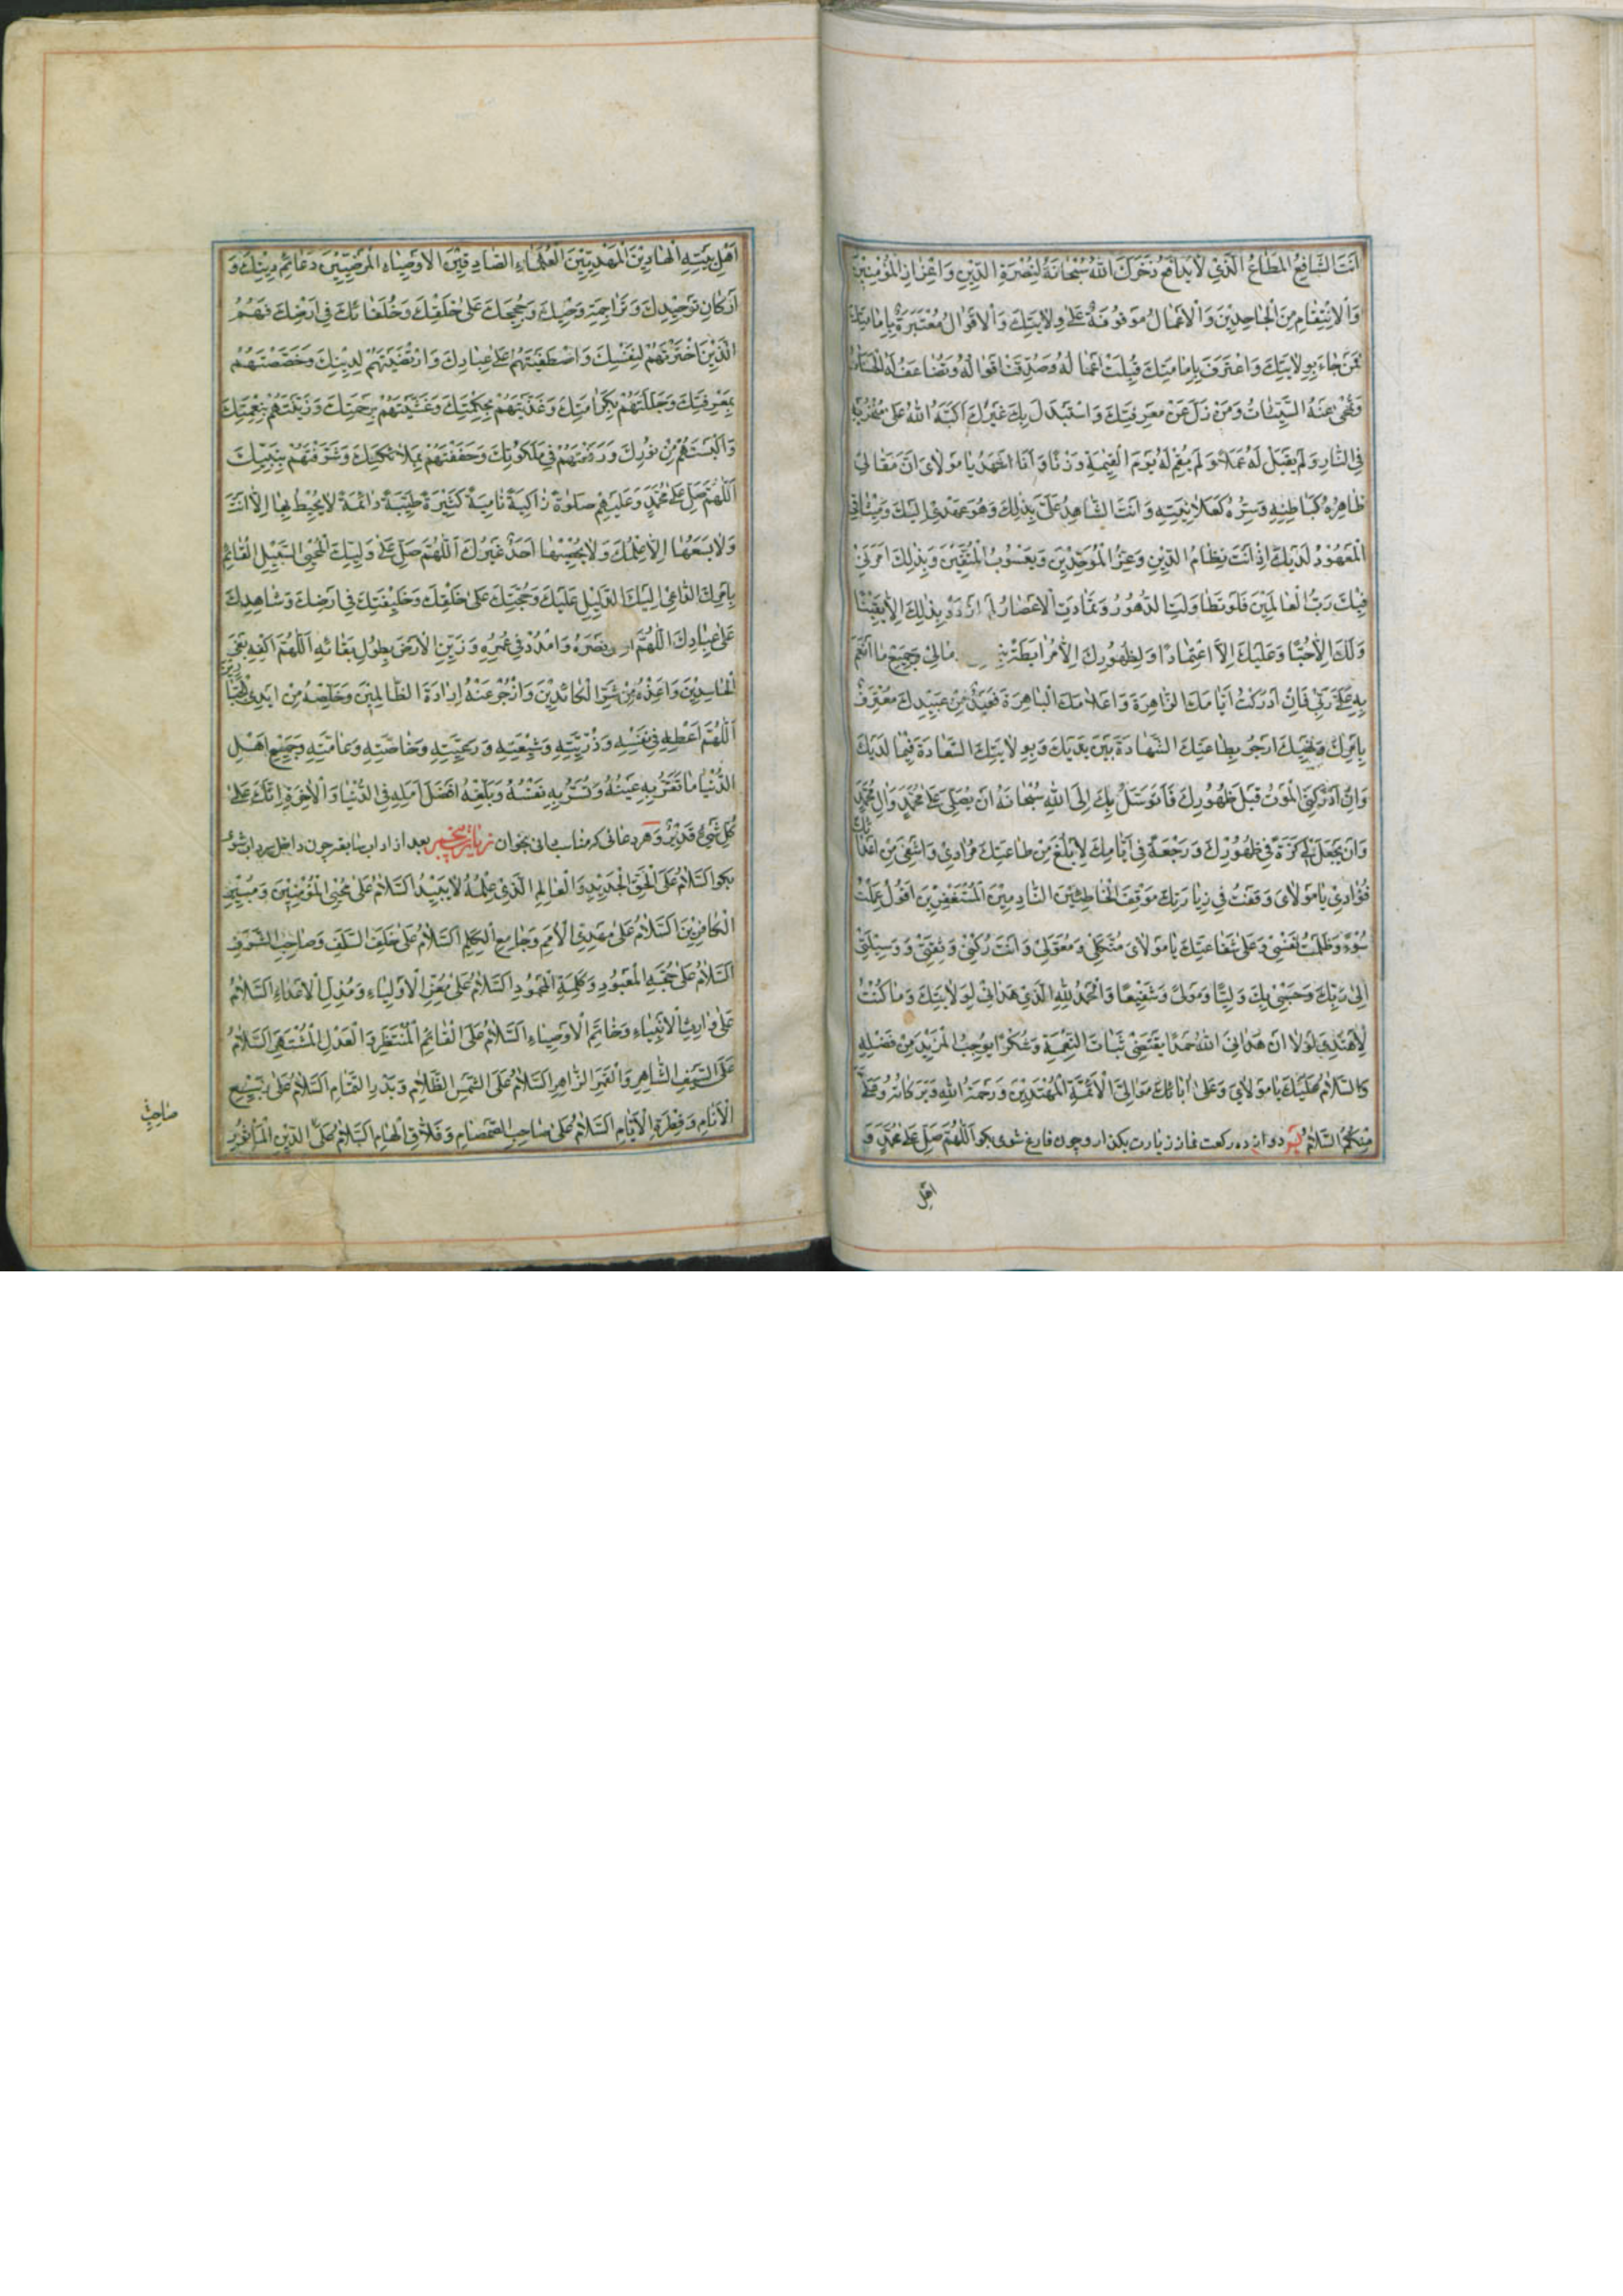 اَنْتَ الشَّافِعُ المُطَاعُ الَّذِي لَا يُدَافَعُ ذَخَرَكَ اللهُ سُبْحَانَهُ لِنُصْرَةِ الدِّيْنِ وَ اِعْزَازِ الْمُؤْمِنِيْنَ
وَالْاِنْتِقَامِ مِنَ الْجَاحِدِيْنَ وَالْاَعْمَالُ مَوْقُوفَةٌ عَلَى وِلَايَتِكَ وَالْاَقْوَالُ مُعْتَبَرَةٌ بِاِمَامَتِكَ
فَمَنْ جَاءَ بِوِلَايَتِكَ وَاعْتَرَفَ بِاِمَامَتِكَ قُبِلَتْ اَعْمَالُهُ وَصُدِّقَتْ اَقْوَالُهُ وَتُضَاعَفُ لَهُ الْحَسَنَاتُ
وَتُمْحٰى عَنْهُ السَّيِّئَاتُ وَمَنْ زَلَّ عَنْ مَعْرِفَتِكَ وَاسْتَبْدَلَ بِكَ غَيْرَكَ اَكَبَّهُ اللهُ عَلٰى مَنْخَرَيْهِ
فِي النَّارِ وَلَمْ يَقْبَلْ لَهُ عَمَلًا وَ لَمْ يُقِمْ لَهُ يَوْمَ الْقِيٰمَةِ وَزْنًا وَ اَنَا اَشْهَدُ يَا مَوْلَايَ اَنَّ مَقَالِيْ
ظَاهِرُهُ كَبَاطِنِهِ وَسِرُّهُ كَعَلَانِيَتِهِ وَ اَنْتَ الشَّاهِدُ عَلَيَّ بِذٰلِكَ وَهُوَ عَهْدِيْ اِلَيْكَ وَمِيْثَاقِيَ
الْمَعْهُوْدُ لَدَيْكَ اِذْ اَنْتَ نِظَامُ الدِّيْنِ وَعِزُّ الْمُوَحِّدِيْنَ وَ يَعْسُوْبُ الْمُتَّقِيْنَ وَبِذٰلِكَ اَمَرَنِيْ
فِيْكَ رَبُّ الْعَالَمِيْنَ فَلَوْ تَطَاوَلَتِ الدُّهُوْرُ وَتَمَادَتِ الْاَعْصَارُ لَمْ اَزْدَدْ بِذٰلِكَ اِلَّا يَقِيْنًا
وَلَكَ اِلَّا حُبًّا وَعَلَيْكَ اِلَّا اعْتِمَادًا وَلِظُهُوْرِكَ اِلَّا مُرَابَطَةً مَالِيْ وَجَمِيْعِ مَا اَنْعَمَ
بِهِ عَلَيَّ رَبِّيْ فَاِنْ اَدْرَكْتُ اَيَّامَكَ الزَّاهِرَةَ وَ اَعْلَامَكَ الْبَاهِرَةَ فَعَبْدٌ مِنْ عَبِيْدِكَ مُعْتَرِفٌ
بِاَمْرِكَ وَنَهْيِكَ اَرْجُوْ بِطَاعَتِكَ الشَّهَادَةَ بَيْنَ يَدَيْكَ وَ بِوِلَايَتِكَ السَّعَادَةَ فِيْمَا لَدَيْكَ
وَاِنْ اَدْرَكَنِيَ الْمَوْتُ قَبْلَ ظُهُوْرِكَ فَاَتَوَسَّلُ بِكَ اِلَى اللهِ سُبْحَانَهُ اَنْ يُصَلِّيَ عَلٰى مُحَمَّدٍ وَاٰلِ مُحَمَّدٍ
وَاَنْ يَجْعَلَ لِيْ كَرَّةً فِيْ ظُهُوْرِكَ وَ رَجْعَةً فِيْ اَيَّامِكَ لِاَبْلُغَ مِنْ طَاعَتِكَ مُرَادِيْ وَ اَشْفِيَ مِنْ اَعْدَائِكَ
فُؤَادِيْ يَا مَوْلَايَ وَقَفْتُ فِيْ زِيَارَتِكَ مَوْقِفَ الْخَاطِئِيْنَ النَّادِمِيْنَ الْمُسْتَغْفِرِيْنَ اَقُوْلُ عَمِلْتُ
سُوْءً وَظَلَمْتُ نَفْسِيْ وَ عَلٰى شَفَاعَتِكَ يَا مَوْلَايَ مُتَّكَلِيْ وَ مُعَوَّلِيْ وَ اَنْتَ رُكْنِيْ وَ ثِقَتِيْ وَ وَسِيْلَتِيْ
اِلٰى رَبِّكَ وَحَسْبِيْ بِكَ وَلِيًّا وَ مَوْلًى وَ شَفِيْعًا وَالْحَمْدُ لِلّٰهِ الَّذِيْ هَدَانِيْ لِوِلَايَتِكَ وَ مَا كُنْتُ
لِاَهْتَدِيَ لَوْلَا اَنْ هَدَانِيَ اللهُ حَمْدًا يَقْتَضِيْ ثَبَاتَ النِّعْمَةِ وَشُكْرًا يُوْجِبُ الْمَزِيْدَ مِنْ فَضْلِهِ
وَالسَّلَامُ عَلَيْكَ يَا مَوْلَايَ وَ عَلٰى اٰبَائِكَ مَوَالِيَّ الْاَئِمَّةِ الْمُهْتَدِيْنَ وَ رَحْمَةُ اللهِ وَ بَرَكَاتُهُ وَعَلَيَّ
مِنْكُمُ السَّلَامُ پس دوازده ركعت نماز زيارت بكذار و چون فارغ شوى بكو اَللّٰهُمَّ صَلِّ عَلٰى مُحَمَّدٍ وَ
اهل
اَهْلِ بَيْتِهِ الْهَادِيْنَ الْمَهْدِيِّيْنَ الْعُلَمَاءِ الصَّادِقِيْنَ الْاَوْصِيَاءِ الْمَرْضِيِّيْنَ دَعَائِمِ دِيْنِكَ وَ
اَرْكَانِ تَوْحِيْدِكَ وَ تَرَاجِمَةِ وَحْيِكَ وَ حُجَجِكَ عَلٰى خَلْقِكَ وَ خُلَفَائِكَ فِيْ اَرْضِكَ فَهُمُ
الَّذِيْنَ اخْتَرْتَهُمْ لِنَفْسِكَ وَ اصْطَفَيْتَهُمْ عَلٰى عِبَادِكَ وَ ارْتَضَيْتَهُمْ لِدِيْنِكَ وَ خَصَصْتَهُمْ
بِمَعْرِفَتِكَ وَ جَلَّلْتَهُمْ بِكَرَامَتِكَ وَ غَذَّيْتَهُمْ بِحِكْمَتِكَ وَ غَشَّيْتَهُمْ بِرَحْمَتِكَ وَ زَيَّنْتَهُمْ بِنِعْمَتِكَ
وَ اَلْبَسْتَهُمْ مِنْ نُوْرِكَ وَ رَفَعْتَهُمْ فِيْ مَلَكُوْتِكَ وَ حَفَفْتَهُمْ بِمَلَائِكَتِكَ وَ شَرَّفْتَهُمْ بِنَبِيِّكَ
اَللّٰهُمَّ صَلِّ عَلٰى مُحَمَّدٍ وَ عَلَيْهِمْ صَلٰوةً زَاكِيَةً نَامِيَةً كَثِيْرَةً طَيِّبَةً دَائِمَةً لَا يُحِيْطُ بِهَا اِلَّا اَنْتَ
وَلَا يَسَعُهَا اِلَّا عِلْمُكَ وَلَا يُحْصِيْهَا اَحَدٌ غَيْرُكَ اَللّٰهُمَّ صَلِّ عَلٰى وَلِيِّكَ الْمُحْيِيْ لِسَبِيْلِ الْقَائِمِ
بِاَمْرِكَ الدَّاعِيْ اِلَيْكَ الدَّلِيْلِ عَلَيْكَ وَ حُجَّتِكَ عَلٰى خَلْقِكَ وَ خَلِيْفَتِكَ فِيْ اَرْضِكَ وَ شَاهِدِكَ
عَلٰى عِبَادِكَ اَللّٰهُمَّ نَصْرَهُ وَ امْدُدْ فِيْ عُمُرِهِ وَ زَيِّنِ الْاَرْضَ بِطُوْلِ بَقَائِهِ اَللّٰهُمَّ اكْفِهِ بَغْيَ
الْحَاسِدِيْنَ وَ اَعِذْهُ مِنْ شَرِّ الْكَائِدِيْنَ وَ ازْجُرْ عَنْهُ اِرَادَةَ الظَّالِمِيْنَ وَ خَلِّصْهُ مِنْ اَيْدِي الْجَبَّارِيْنَ
اَللّٰهُمَّ اَعْطِهِ فِيْ نَفْسِهِ وَ ذُرِّيَّتِهِ وَ شِيْعَتِهِ وَ رَعِيَّتِهِ وَ خَاصَّتِهِ وَ عَامَّتِهِ وَ جَمِيْعِ اَهْلِ
الدُّنْيَا مَا تُقِرُّ بِهِ عَيْنَهُ وَ تَسُرُّ بِهِ نَفْسَهُ وَ بَلِّغْهُ اَفْضَلَ اَمَلِهِ فِي الدُّنْيَا وَ الْاٰخِرَةِ اِنَّكَ عَلٰى
كُلِّ شَيْءٍ قَدِيْرٌ و هر دعائى كه مناسب دانى بخوان زيارت پنجم بعد از اداب سابقه چون داخل سرداب شوى
بكو اَلسَّلَامُ عَلَى الْحَقِّ الْجَدِيْدِ وَ الْعَالِمِ الَّذِيْ عِلْمُهُ لَا يَبِيْدُ اَلسَّلَامُ عَلٰى مُحْيِي الْمُؤْمِنِيْنَ وَ مُبِيْرِ
الْكَافِرِيْنَ اَلسَّلَامُ عَلٰى مَهْدِيِّ الْاُمَمِ وَ جَامِعِ الْكَلِمِ اَلسَّلَامُ عَلٰى خَلَفِ السَّلَفِ وَ صَاحِبِ الشَّرَفِ
اَلسَّلَامُ عَلٰى حُجَّةِ الْمَعْبُوْدِ وَ كَلِمَةِ الْمَحْمُوْدِ اَلسَّلَامُ عَلٰى مُعِزِّ الْاَوْلِيَاءِ وَ مُذِلِّ الْاَعْدَاءِ اَلسَّلَامُ
عَلٰى وَارِثِ الْاَنْبِيَاءِ وَ خَاتَمِ الْاَوْصِيَاءِ اَلسَّلَامُ عَلَى الْقَائِمِ الْمُنْتَظَرِ وَ الْعَدْلِ الْمُشْتَهَرِ اَلسَّلَامُ
عَلَى السَّيْفِ الشَّاهِرِ وَ الْقَمَرِ الزَّاهِرِ اَلسَّلَامُ عَلٰى الشَّمْسِ الظَّلَامِ وَ بَدْرِ التَّمَامِ اَلسَّلَامُ عَلٰى رَبِيْعِ
الْاَنَامِ وَ فِطْرَةِ الْاَيَّامِ اَلسَّلَامُ عَلٰى صَاحِبِ الصَّمْصَامِ وَ فَلَّاقِ الْهَامِ اَلسَّلَامُ عَلَى الدِّيْنِ الْمَأْثُوْرِ
صَاحِبِ